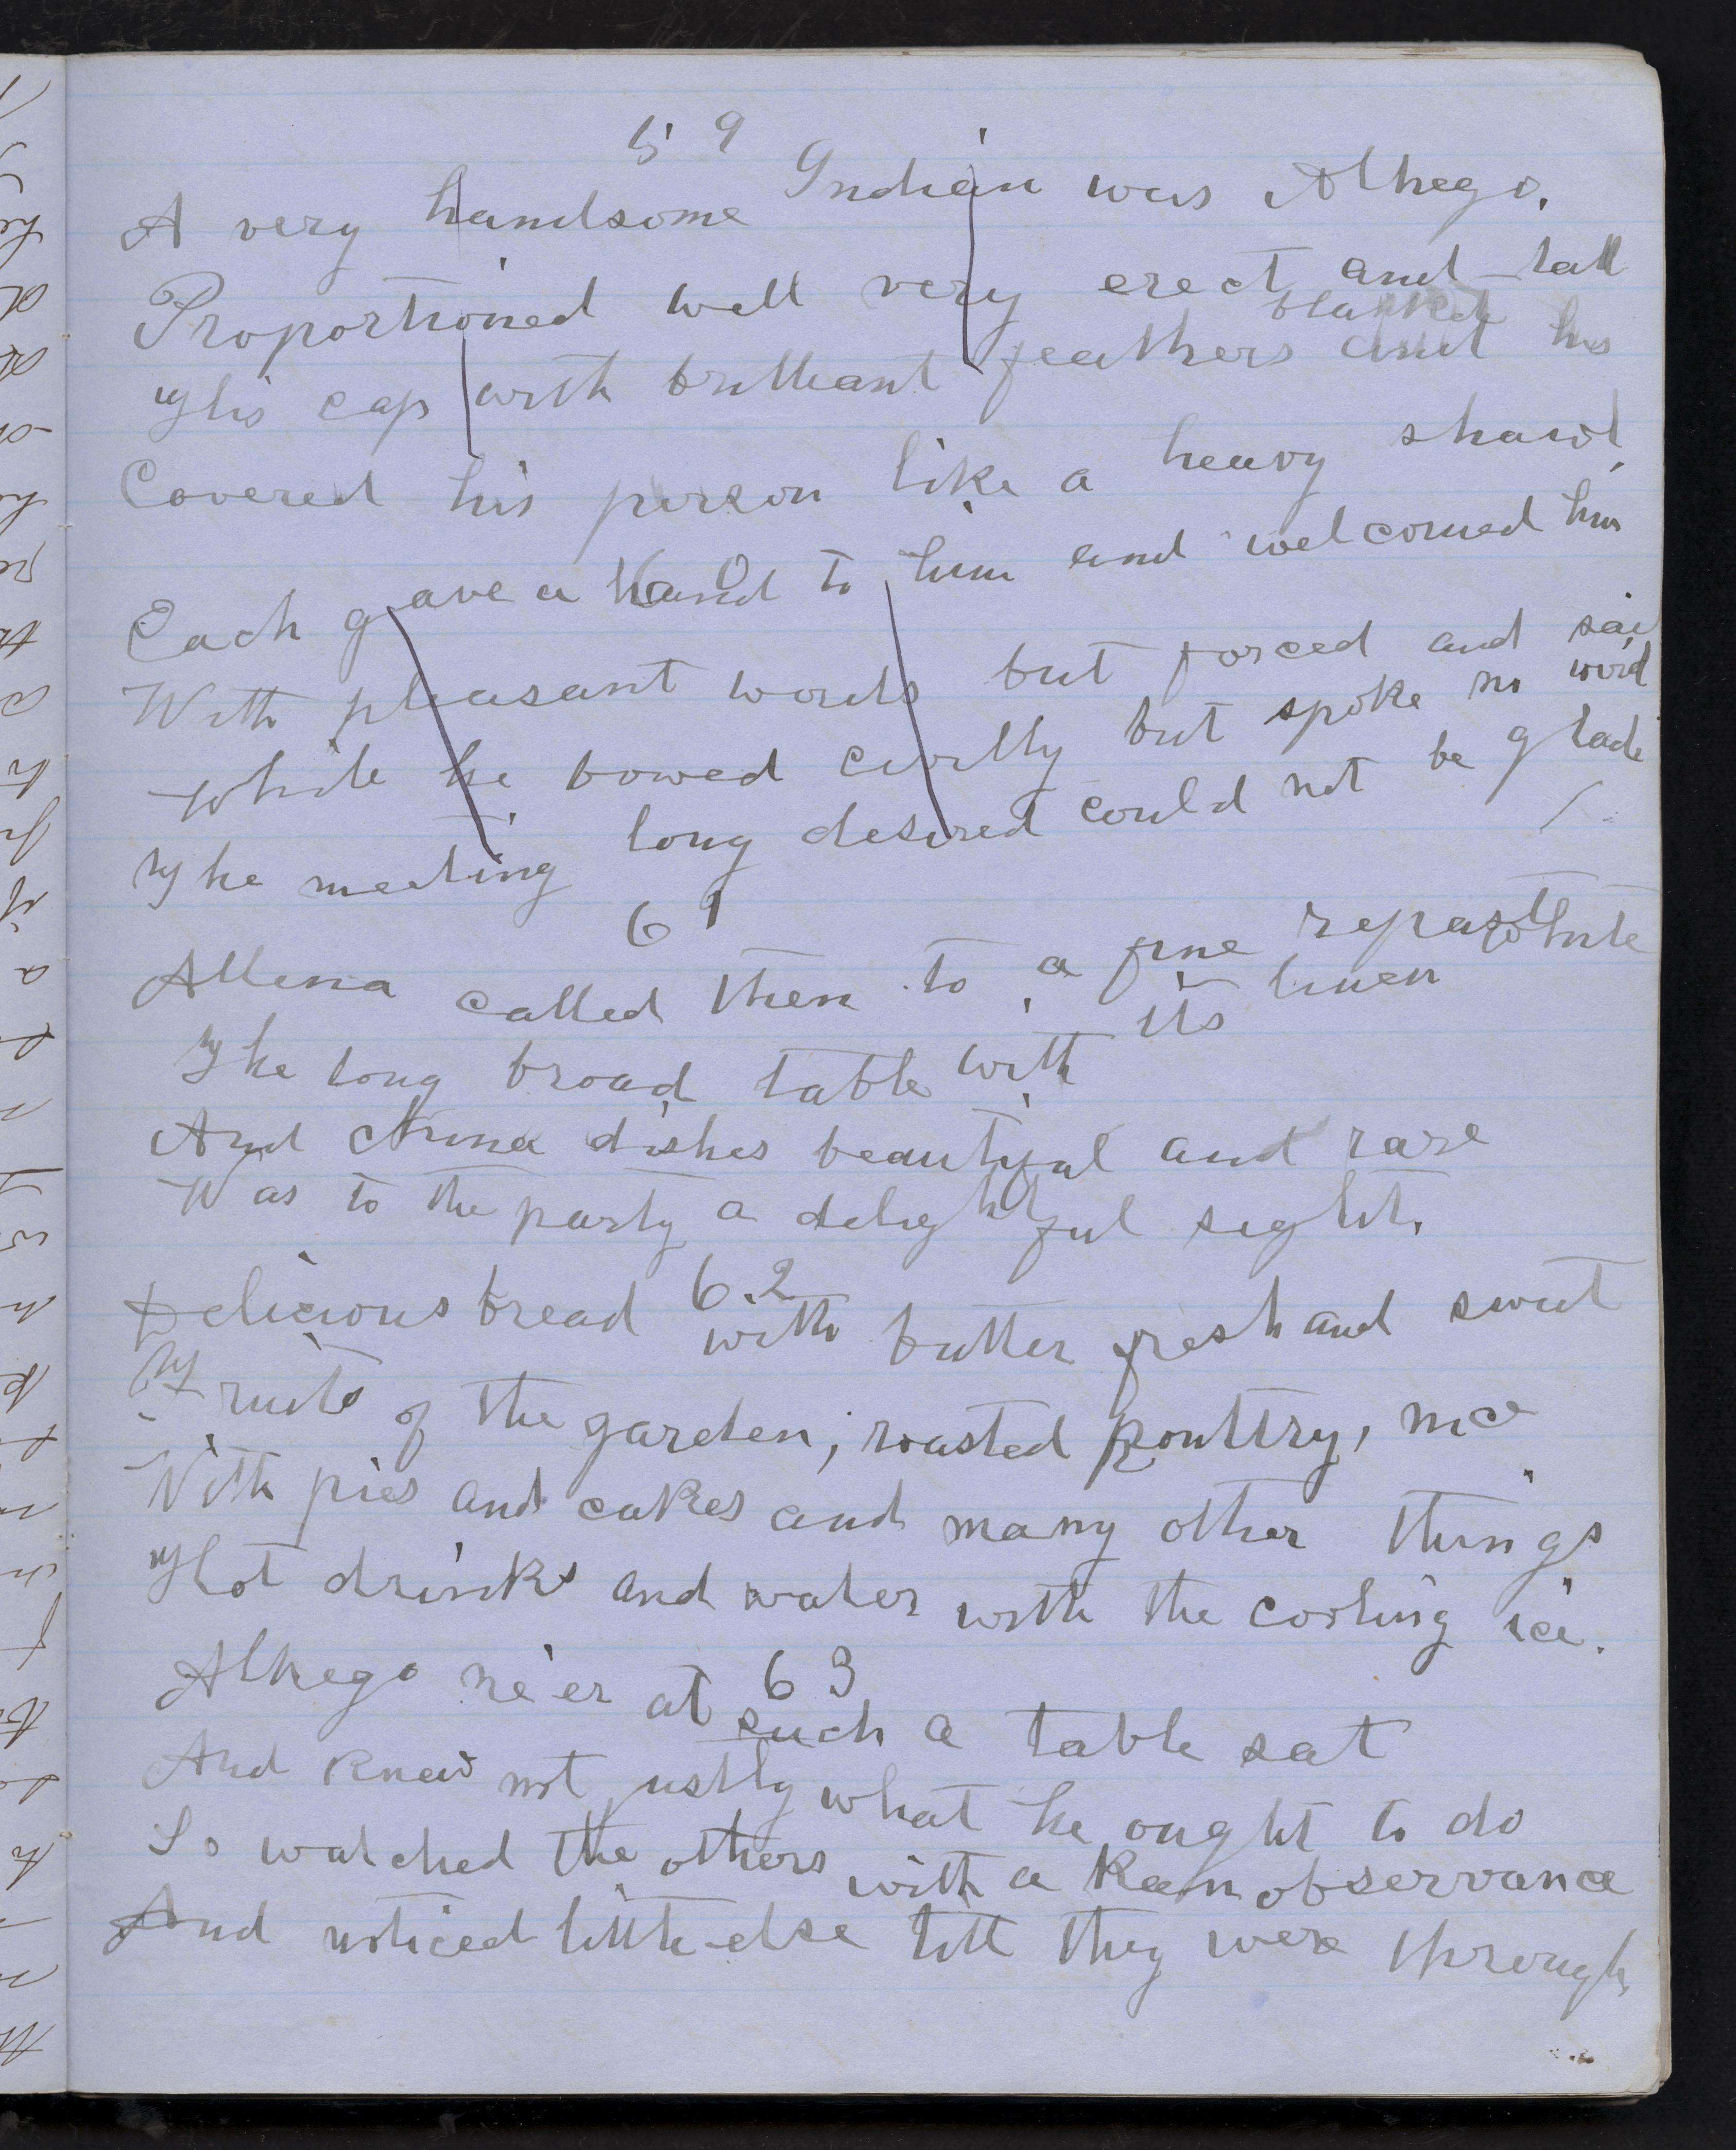 59
A very handsome Indian was Alhego.
Proportioned well very erect and tall
His cap with brilliant feathers and his blanket
Covered his person like a heavy shawl,
60
Each gave a hand to him and welcomed him
With pleasant words but forced and said
While he bowed civilly but spoke no word
The meeting long desired could not be glade
61
Allena called them to a fine repast
The long broad table with its linen white
And china dishes beautiful and rare
Was to the party a delightful sight.
62
Delicious bread with butter fresh and sweet
Fruits of the garden, roasted poultry, nice
With pies and cakes and many other things
Hot drinks and water with the cooling ice.
63
Alhego ne'er at such a table sat
And knew not justly what he ought to do
So watched the others with a keen observance
And noticed little else till they were through,